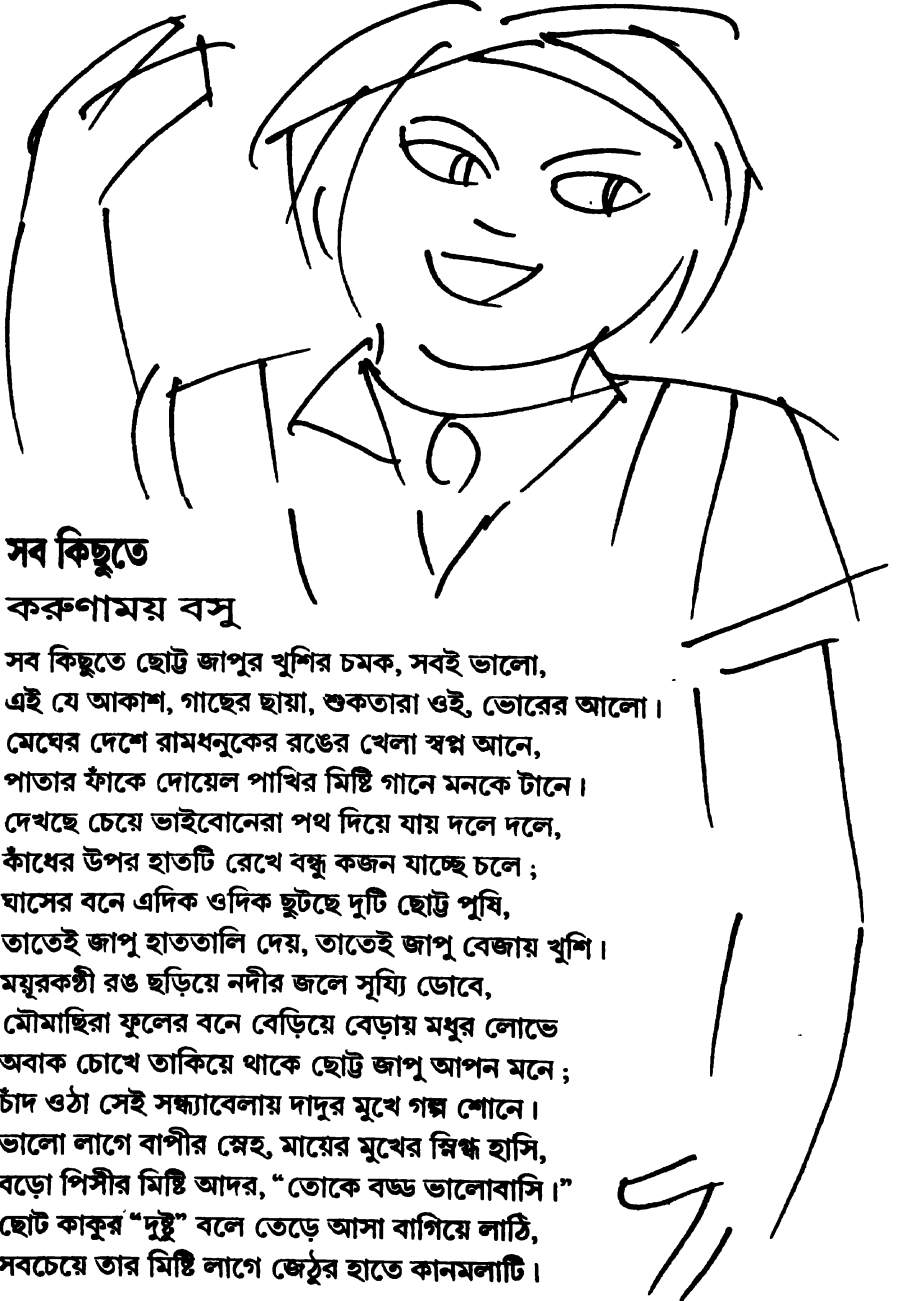 সব কিছুতে
করুণাময় বসু
সব কিছুতে ছোট্ট জাপুর খুশির চমক, সবই ভালো,
এই যে আকাশ, গাছের ছায়া, শুকতারা ওই, ভোরের আলো।
মেঘের দেশে রামধনুকের রঙের খেলা স্বপ্ন আনে,
পাতার ফাঁকে দোয়েল পাখির মিষ্টি গানে মনকে টানে।
দেখছে চেয়ে ভাইবোনেরা পথ দিয়ে যায় দলে দলে,
কাঁধের উপর হাতটি রেখে বন্ধু কজন যাচ্ছে চলে;
ঘাসের বনে এদিক ওদিক ছুটছে দুটি ছোট্ট পুষি,
তাতেই জাপু হাততালি দেয়, তাতেই জাপু বেজায় খুশি।
ময়ূরকণ্ঠী রঙ ছড়িয়ে নদীর জলে সূয্যি ডোবে,
মৌমাছিরা ফুলের বনে বেড়িয়ে বেড়ায় মধুর লোভে
অবাক চোখে তাকিয়ে থাকে ছোট্ট জাপু আপন মনে;
চাঁদ ওঠা সেই সন্ধ্যাবেলায় দাদুর মুখে গল্প শোনে।
ভালো লাগে বাপীর স্নেহ, মায়ের মুখের স্নিগ্ধ হাসি,
বড়ো পিসীর মিষ্টি আদর, “তোকে বড্ড ভালোবাসি।”
ছোট কাকুর “দুষ্টু” বলে তেড়ে আসা বাগিয়ে লাঠি,
সবচেয়ে তার মিষ্টি লাগে জেঠুর হাতে কানমলাটি।